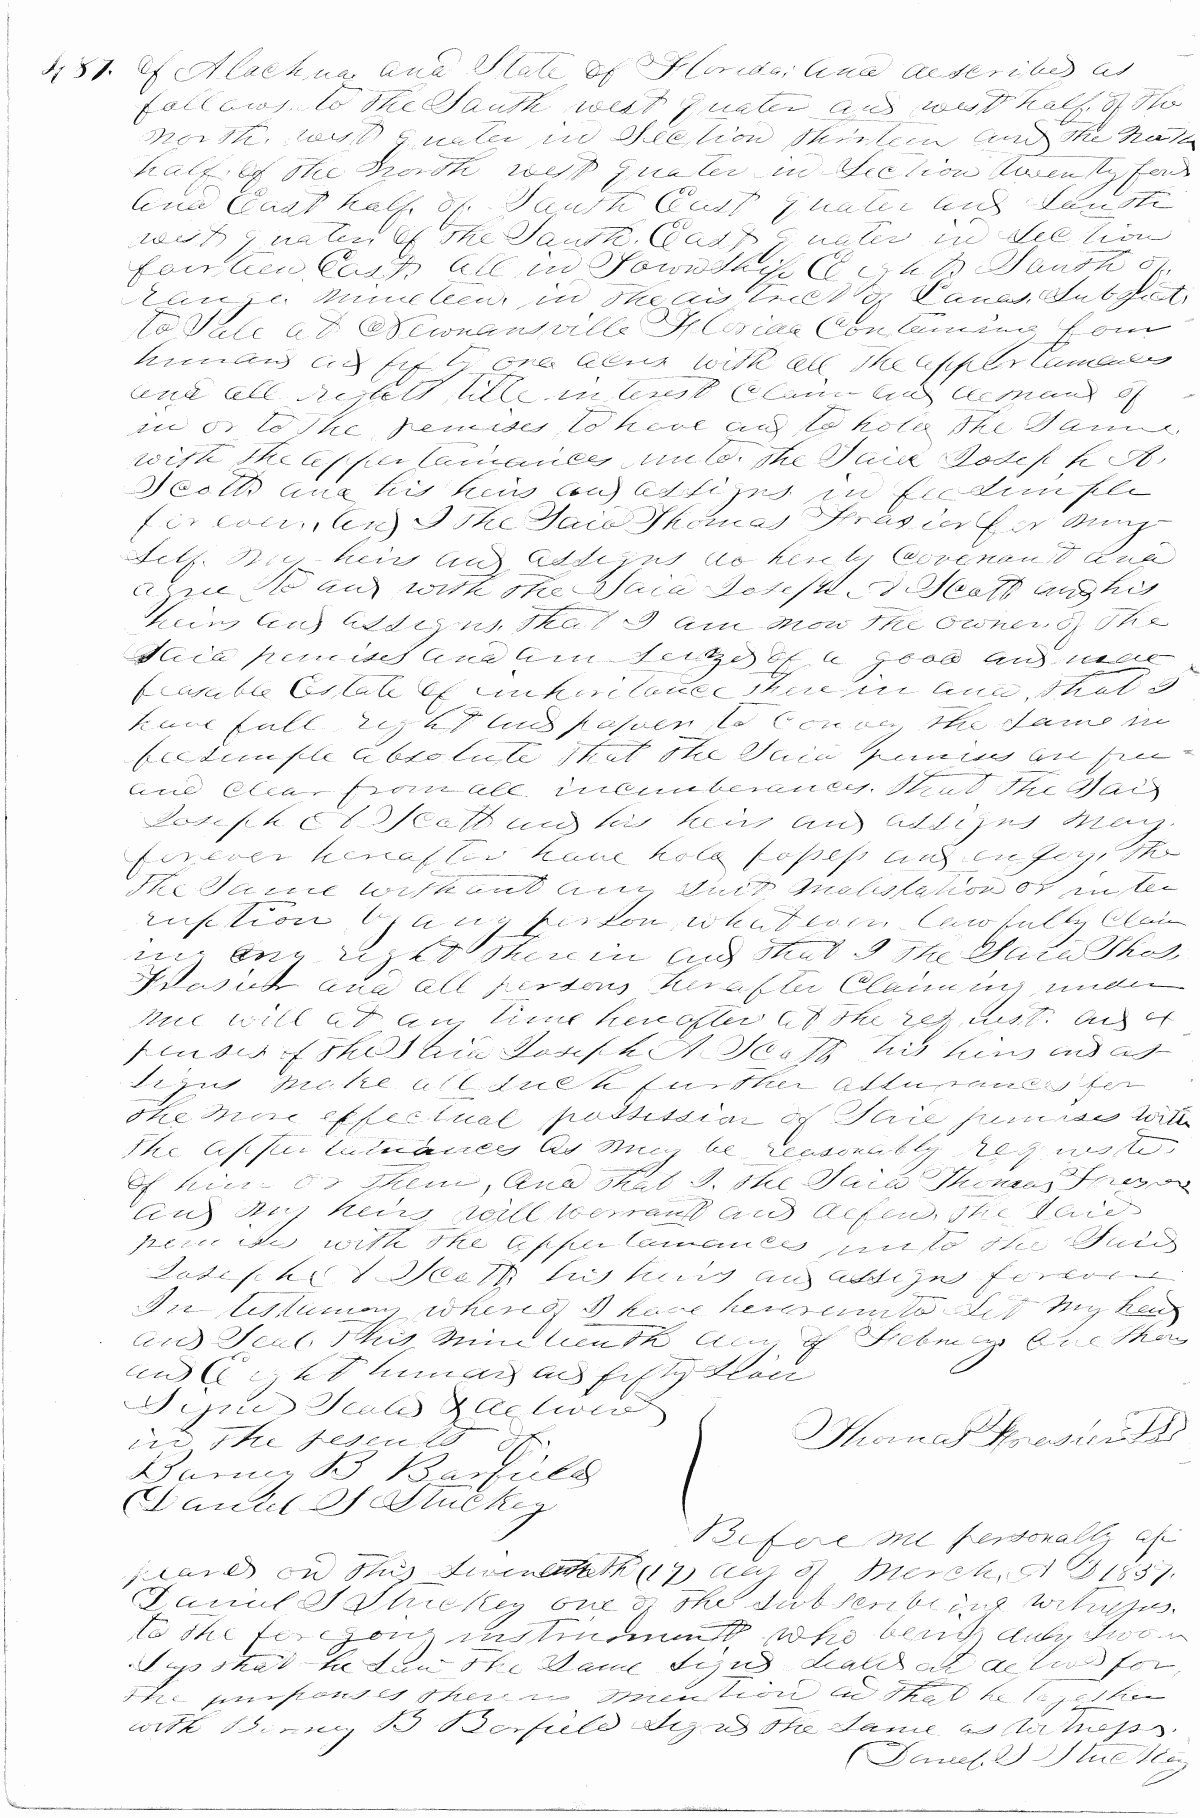 487. of Alachua and State of Florida; and described as
follows. to the South west quater and west half. of the
north. west quater in Section thirteen and the North
half. of the North west quater in Section twenty four
and East half. of. South East quater and South
west quater. of the South. East quater in Section
fourteen East all in Township Eight South of.
range. nineteen. in the district of Lands. Subject
to Sale at Newnansville Florida Containing four
hundred and fifty one acres with all the appertainances
and all rights title interest Claim and demand of
in or to the premises to have and to hold the Same
with the appertainances unto. the Said Joseph A.
Scott and his heirs and assigns in fee simple
forever. and I the Said Thomas Frasier for my
Self. my heirs and assigns do hereby Covenant and
agree to and with the Said Joseph A Scott and his
heirs and assigns, that I am now the owner of the
Said premises and am seized of a good and
feasable Estate of inheritance there in and, that I
have full right and power to Convey the Same in
fee simple absolute that the Said premises are free
and Clear from all incumberances. that the Said
Joseph A Scott and his heirs and assigns may.
forever hereafter have hold posess and enjoy, the
the Same without any suit molistation or inter
ruption by any person whatever lawfully Claim
ing any right therein and that I the Said Thos.
Frasier and all persons herafter Claiming under
me will at any time hereafter at the request. and ex
penses of the Said Joseph A Scott his heirs and as
signs make all such further assurances for
the more effectual possession of Said premises with
the appertainances as may be reasonably requested
of him or them, and that I. the Said Thomas Frasier
and my heirs will warrant and defend the Said
premises with the appertainances unto the Said
Joseph A Scott his heirs and assigns forever
In testimony whereof I have hereunto Set my hand
and Seal this nineteenth day of Febuary one thous
and Eight hundred and fifty
Signed Sealed & delivered
in the presents of. Thomas Frasier
Barney B Barfield
Daniel S Stuckey
Before me personally ap
peared on this seventeenth (17) day of March. A D 1857.
Daniel S Stuckey one of the Subscribeing witness.
to the foregoing instrument who being duly Sworn
Says that he Saw the Same Signed Sealed and delivered for
the purposes therein mention and that he together
with Barney B Barfield Signed the Same as witness.
Daniel. S Stuckey